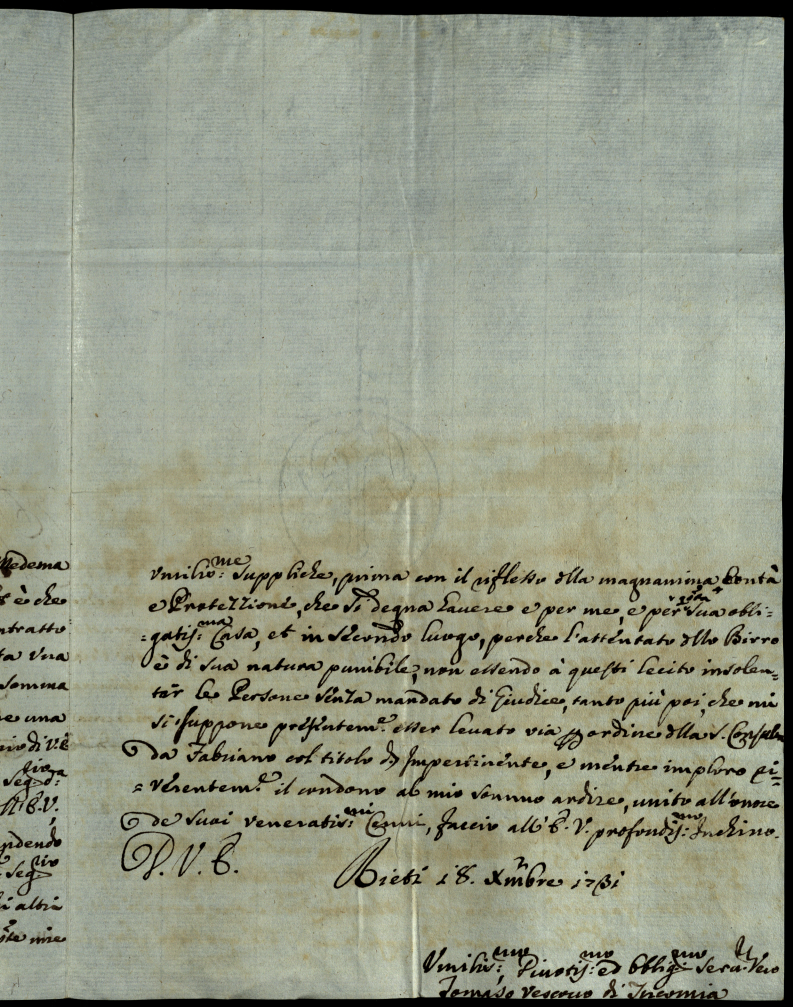 Medema
è che
ntratto
ta una
somma
re una
rio di V. E.
E. V.
ndendo
i altri
mie
Umilis:me Suppliche, prima con il riflesso della magnanima bontà
e Protezzione, che si degna havere e per me, e per questa Sua obli-
=gatis:ma Casa, et in secondo luogo, perche l'attentato dello Birro
è di sua natura punibile, non essendo à questi lecito insolen=
tar le Persone senza mandato di Giudice, tanto più poi, che mi
si suppone presentem.e esser levato via per ordine della S. Consulta
da Fabriano col titolo d'Impertinente, e mentre imploro ri-
=verentem.e il condono al mio sommo ardire, unito all'onore
de suoi veneratis:mi Cenni, faccio all'E. V. profondis:mo Inchino.
D. V. E.
Rieti 18. Xmbre 1731
Umilis:mo, Divotis:mo ed Obblig:mo Serv. Vero
Tomaso Vescovo di